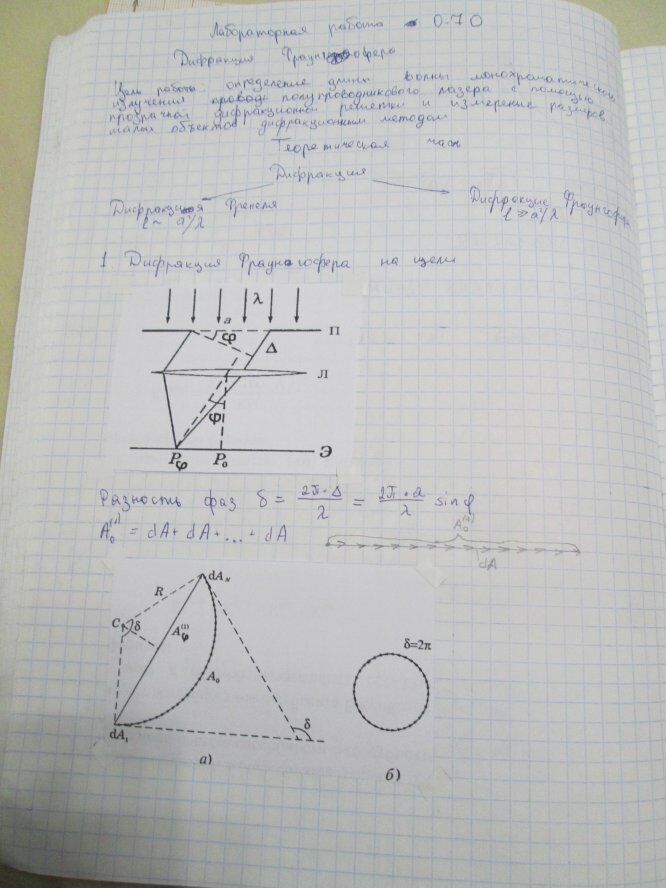 Лабораторная работа О-70
Дифракция Фраунгофера
Цель работы: определение длины волны монохроматического
излучения полупроводникового лазера с помощью
прозрачной дифракционной решетки и измерение размеров
малых объектов дифракционным методом
Теоретическая часть
Дифракция
Дифракция Френеля
l ~ a²/λ
Дифракция Фраунгофера
l ≫ a²/λ
1. Дифракция Фраунгофера на щели
λ
a
П
φ
Δ
Л
φ
Pφ P₀ Э
Разность фаз δ = 2π·Δ/λ = 2π·a/λ sinφ
A₀⁽¹⁾ = dA + dA + ... + dA
A₀⁽¹⁾
dA
dAN
R
C δ
Aφ⁽¹⁾
A₀
δ
dA₁
а)
δ=2π
б)